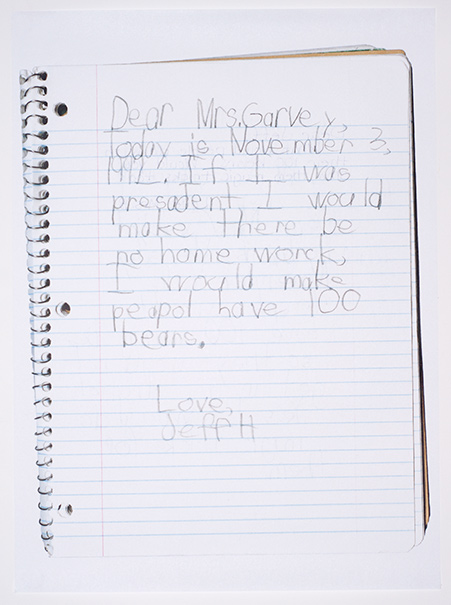 Dear Mrs. Garvey,
Today is November 3,
If I was
presadent I would
make there be
no home worck,
I would make
peapol have 100
bears.
Love,
Jeff H